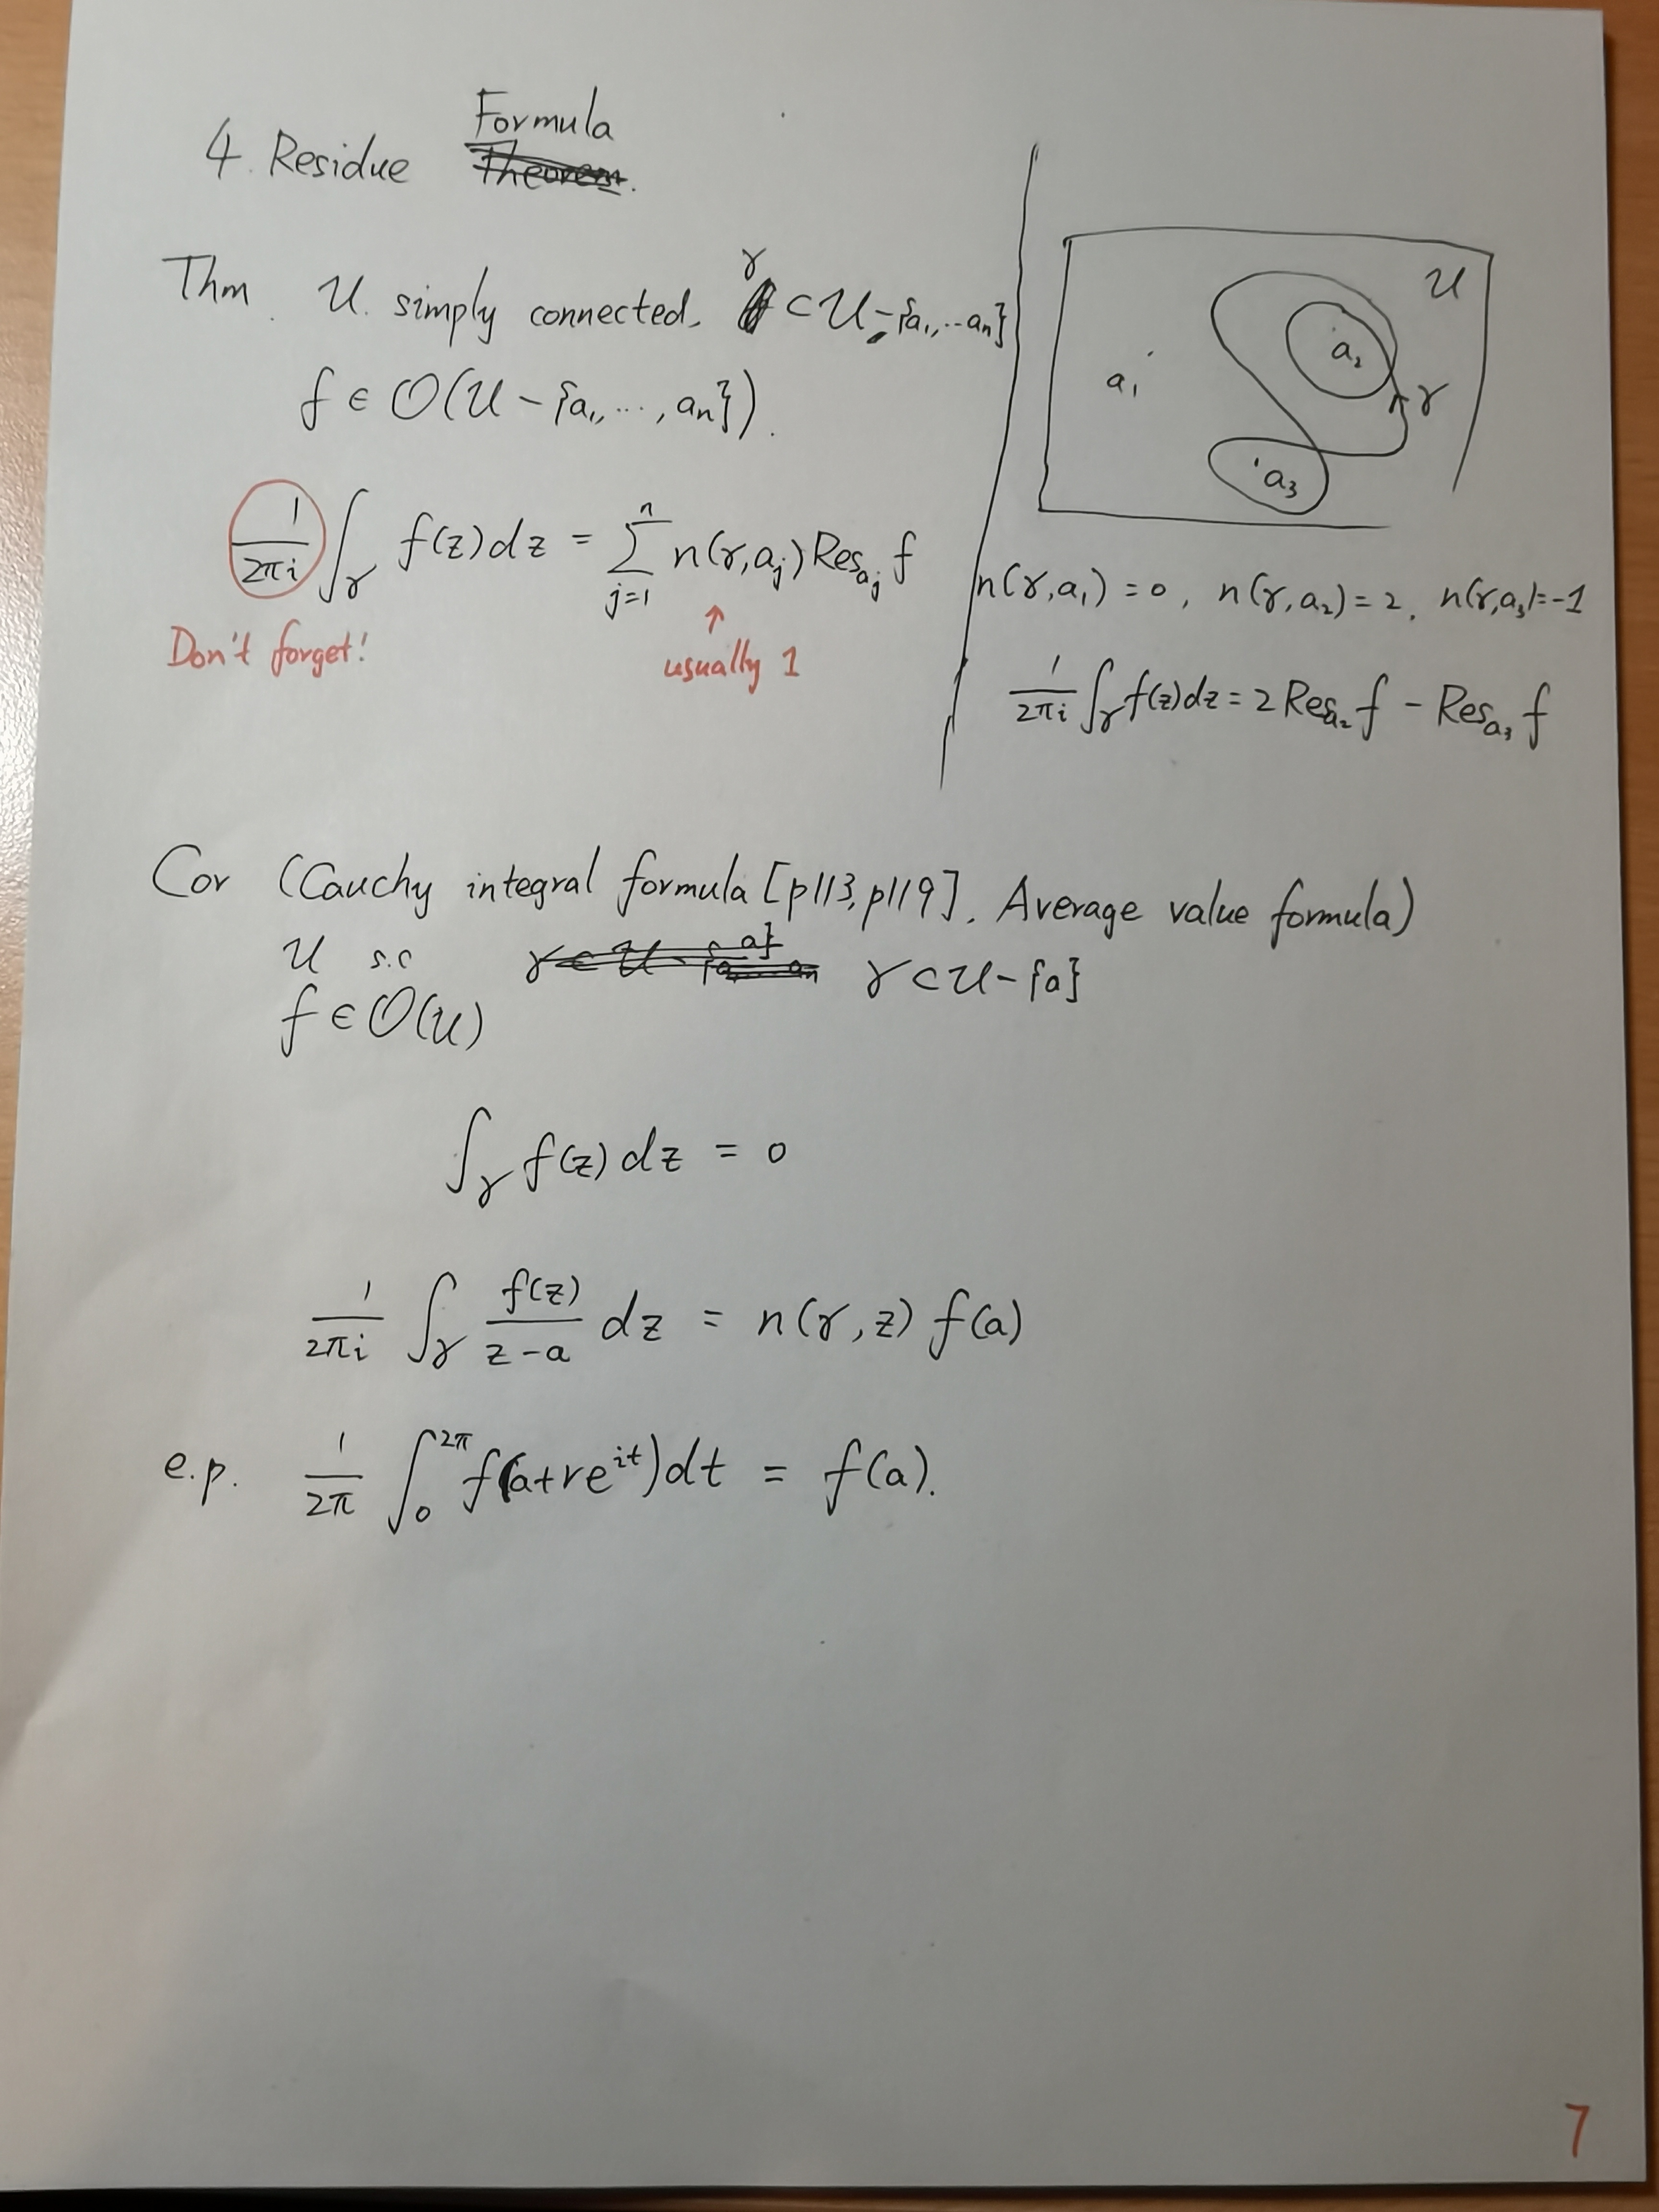 4. Residue Formula
Thm. U simply connected. γ ⊂ U - {a₁, ... aₙ}
f ∈ O(U - {a₁, ..., aₙ}).
1/(2πi) ∫_γ f(z)dz = Σ_{j=1}^{n} n(γ,a_j) Res_{a_j} f
Don't forget!
↑
usually 1
U
a₁
a₂
γ
a₃
n(γ,a₁) = 0, n(γ,a₂) = 2, n(γ,a₃) = -1
1/(2πi) ∫_γ f(z)dz = 2 Res_{a₂} f - Res_{a₃} f
Cor (Cauchy integral formula [p113, p119], Average value formula)
U s.c γ ⊂ U - {a}
f ∈ O(U)
∫_γ f(z) dz = 0
1/(2πi) ∫_γ f(z)/(z-a) dz = n(γ,z) f(a)
e.p. 1/(2π) ∫_0^{2π} f(a+re^{it})dt = f(a).
7